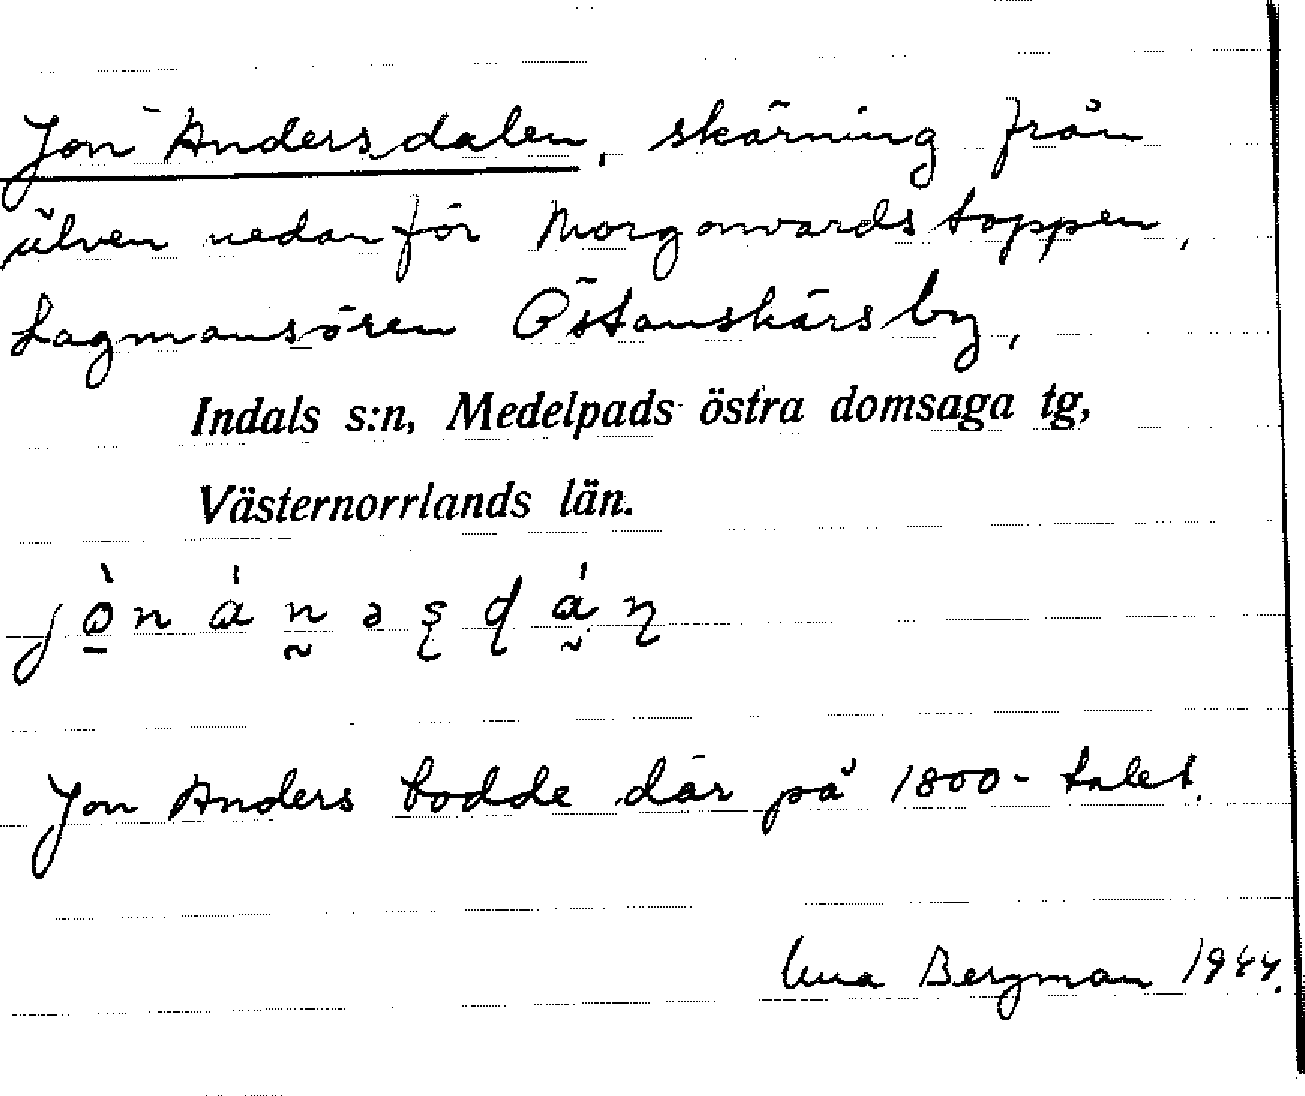 Jon Andersdalen, skärning från
älven nedanför Morgonvardstoppen,
Lagmansören Östanskärs by,
Indals s:n, Medelpads östra domsaga tg,
Västernorrlands län.
Jon Anders bodde där på 1800-talet.
Bergman 1944.